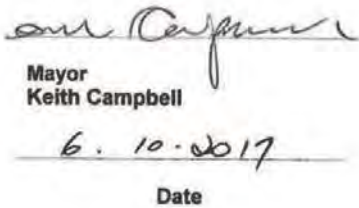 Mayor
Keith Campbell
6. 10. 2017
Date